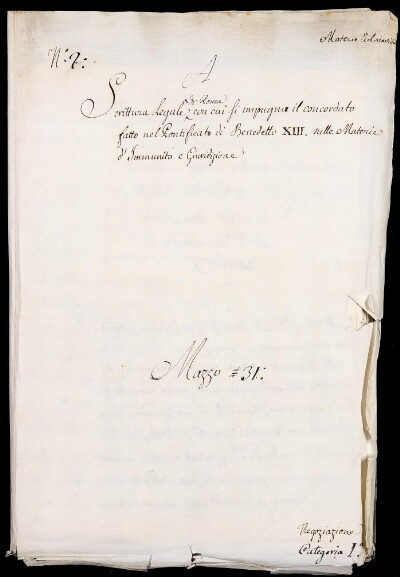 Materie
N.° 2:
A
di Roma
Scrittura legale con cui si impugna il concordato
fatto nel Pontificato di Benedetto XIII. nelle Materie
d'Immunità e Giurisdizione
Mazzo # 31:
Negoziazione
Categoria I.